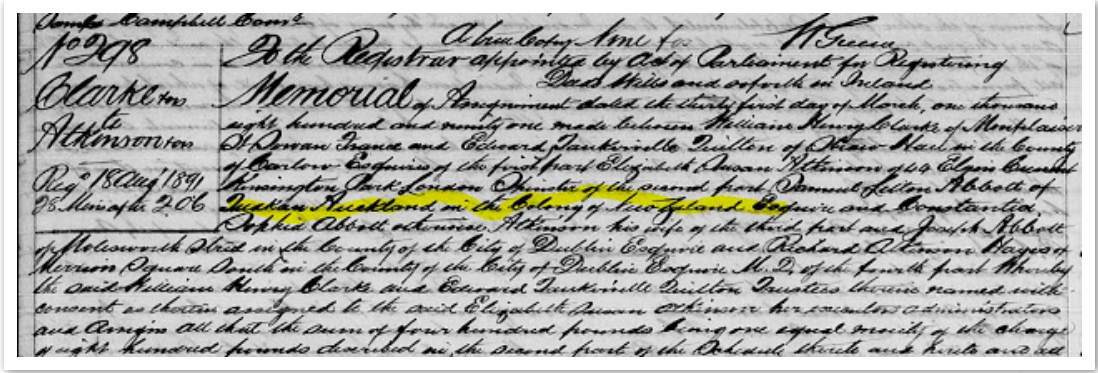 James Campbell Comr
A true Copy
W Greene
No 298
To the Registrar appointed by Act of Parliament for Registering
Deeds Wills and so forth in Ireland
Clarke & ors
to
Atkinson & ors
Regd 18 Aug 1891
28 Mins after 2 O'C
Memorial of Assignment dated the thirty first day of March, one thousand
eight hundred and ninety one made between William Henry Clarke of Monplaisir
St Sowan France and Edward Tankerville Quilton of Shaw Hall in the County
of Carlow Esquires of the first part Elizabeth Susan Atkinson of 44 Elgin Crescent
Kensington Park London Spinster of the second part Samuel Abbott of
Auckland in the Colony of New Zealand Esquire and Constantia
Sophia Abbott otherwise Atkinson his wife of the third part and Joseph Abbott
of Molesworth Street in the County of the City of Dublin Esquire and Richard Atkinson Hayes of
Merrion Square South in the County of the City of Dublin Esquire M.D. of the fourth part Whereby
the said William Henry Clarke and Edward Tankerville Quilton Trustees therein named with
consent as therein assigned to the said Elizabeth Susan Atkinson her executors administrators
and assigns all that the sum of four hundred pounds being one equal moiety of the charge
of eight hundred pounds described in the second part of the Schedule thereto and hereto and all